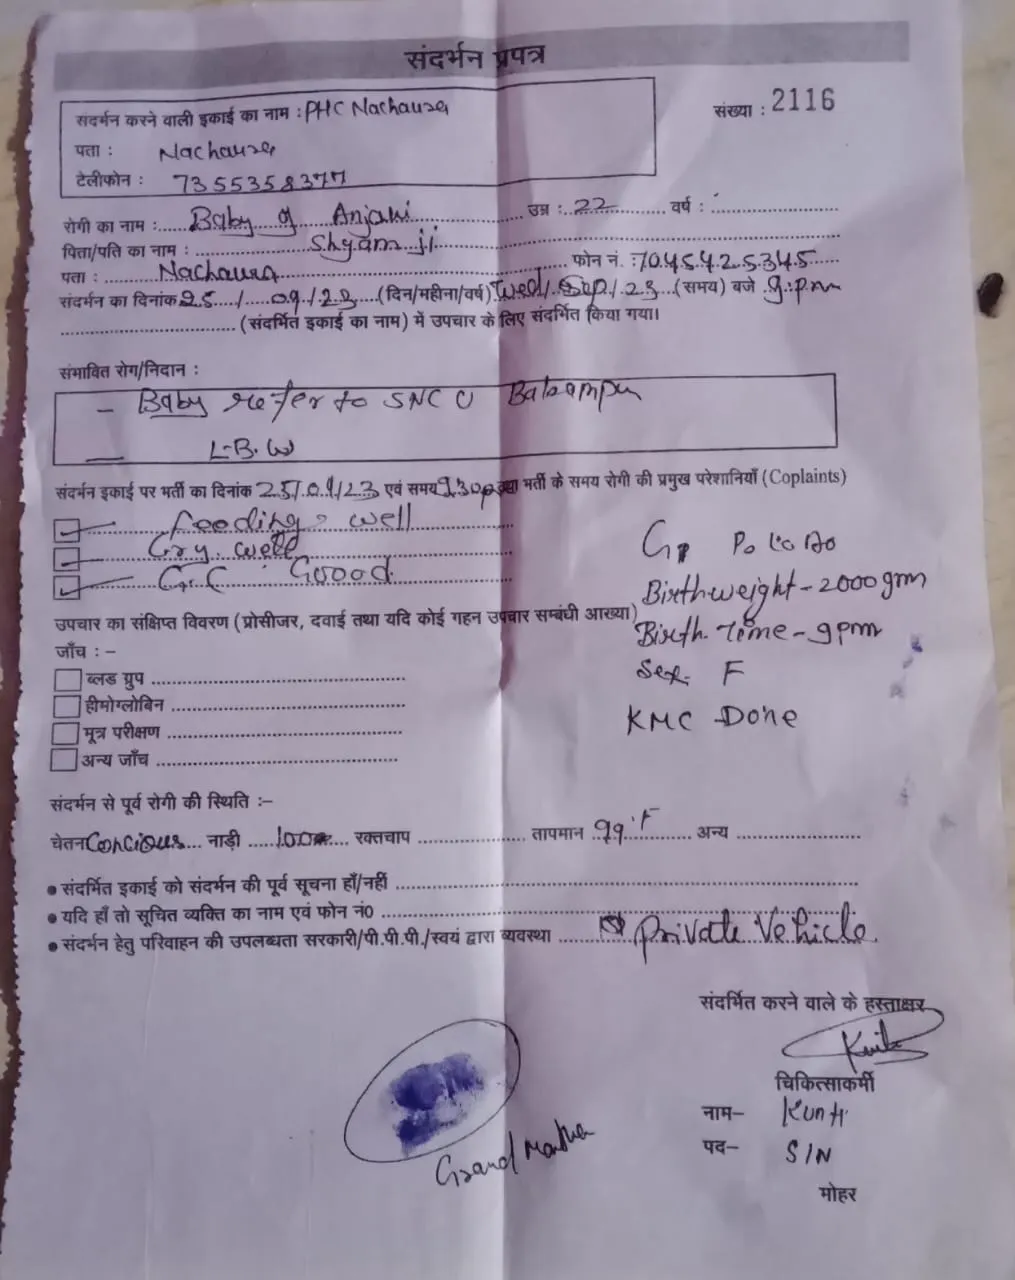 संदर्भन प्रपत्र
संदर्भन करने वाली इकाई का नाम : PHC Nachaura
संख्या : 2116
पता : Nachaura
टेलीफोन : 7355358377
रोगी का नाम : Baby of Anjani उम्र : 22 वर्ष :
पिता/पति का नाम : Shyam ji
पता : Nachaura फोन नं. : 7045425345
संदर्भन का दिनांक 25/09/23 (दिन/महीना/वर्ष) Wed/Sep/23 (समय) बजे 9:pm
(संदर्भित इकाई का नाम) में उपचार के लिए संदर्भित किया गया।
संभावित रोग/निदान :
– Baby refer to SNCU
– L.B.W
संदर्भन इकाई पर भर्ती का दिनांक 25/09/23 एवं समय 9:30p तथा भर्ती के समय रोगी की प्रमुख परेशानियाँ (Coplaints)
feeding well
Cry well
G.C Goood.
G1 P0 L0 A0
Birth weight – 2000 grm
उपचार का संक्षिप्त विवरण (प्रोसीजर, दवाई तथा यदि कोई गहन उपचार सम्बंधी आख्या)
Birth Time – 9pm
जाँच : –
Sex. F
ब्लड ग्रुप
हीमोग्लोबिन
KMC Done
मूत्र परीक्षण
अन्य जाँच
संदर्भन से पूर्व रोगी की स्थिति :–
चेतन Concious नाड़ी 100 रक्तचाप तापमान 99°F अन्य
• संदर्भित इकाई को संदर्भन की पूर्व सूचना हाँ/नहीं
• यदि हाँ तो सूचित व्यक्ति का नाम एवं फोन नं0
• संदर्भन हेतु परिवाहन की उपलब्धता सरकारी/पी.पी.पी./स्वयं द्वारा व्यवस्था Private Vehicle.
संदर्भित करने वाले के हस्ताक्षर
चिकित्साकर्मी
नाम– Kunti
पद– S/N
मोहर
Grand Mother